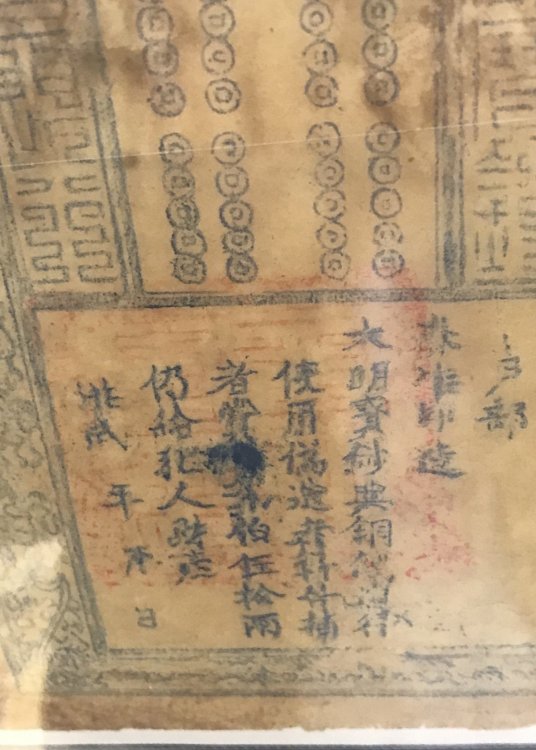 户部
奏准印造
大明寶鈔與銅錢通行
使用偽造者斬捕
者賞伯伍拾兩
仍給犯人財產
洪武 年 月 日